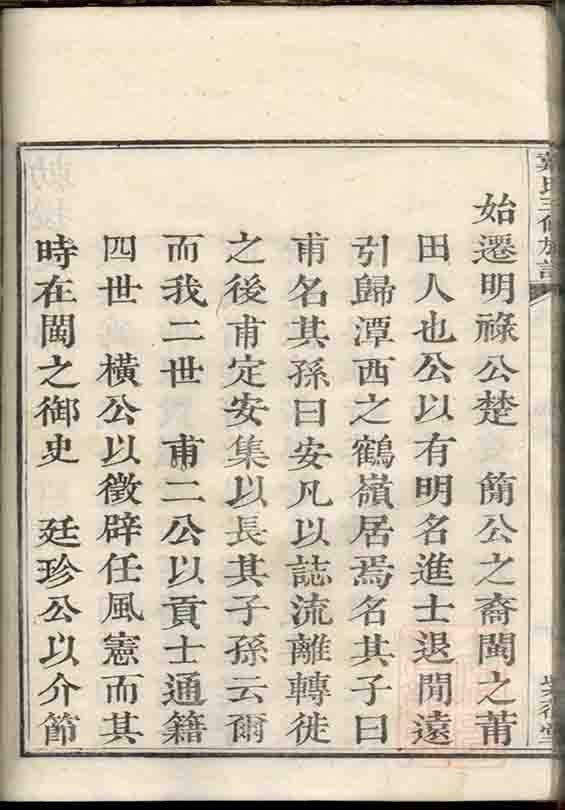 始遷明祿公楚　簡公之裔閩之莆
田人也公以有明名進士退閒遠
引歸潭西之鶴嶺居焉名其子曰
甫名其孫曰安凡以誌流離轉徙
之後甫定安集以長其子孫云爾
而我二世　甫二公以貢士通籍
四世　橫公以徵辟任風憲而其
時在閩之御史　廷珍公以介節